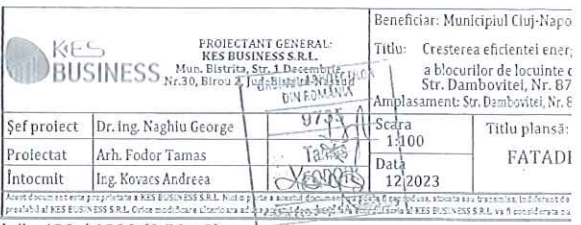 KES
BUSINESS
PROIECTANT GENERAL:
KES BUSINESS S.R.L.
Mun. Bistrita, Str. 1 Decembrie
Nr.30, Birou 2, Jud.
DIN ROMÂNIA
9735
Beneficiar: Municipiul Cluj-Napo
Titlu: Cresterea eficientei ener
a blocurilor de locuinte
Str. Dambovitei, Nr. 87
Amplasament: Str. Dambovitei, Nr. 8
Șef proiect Dr. ing. Naghiu George
Proiectat Arh. Fodor Tamas
Întocmit Ing. Kovacs Andreea
Scara
1:100
Data
12/2023
Titlu planșă:
FATADE
Acest document este proprietate a KES BUSINESS S.R.L.
prealabil al KES BUSINESS S.R.L. Orice modificare ulterioara
KES BUSINESS S.R.L. va fi considerata